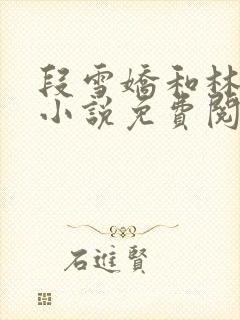 段雪嬌和林
小說免費閱
石進賢